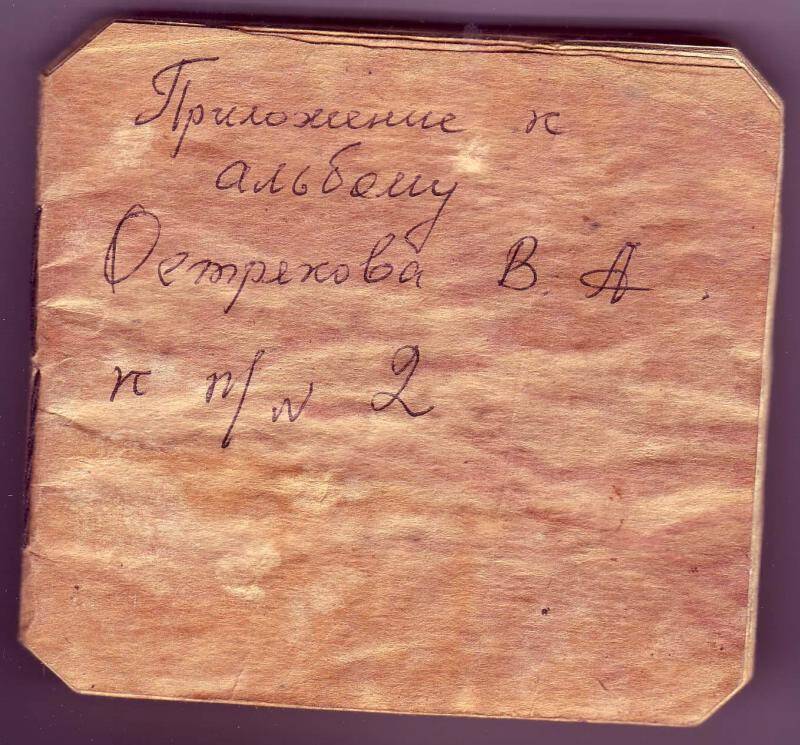 Приложение к
альбому
Острякова В. А.
к п/№ 2